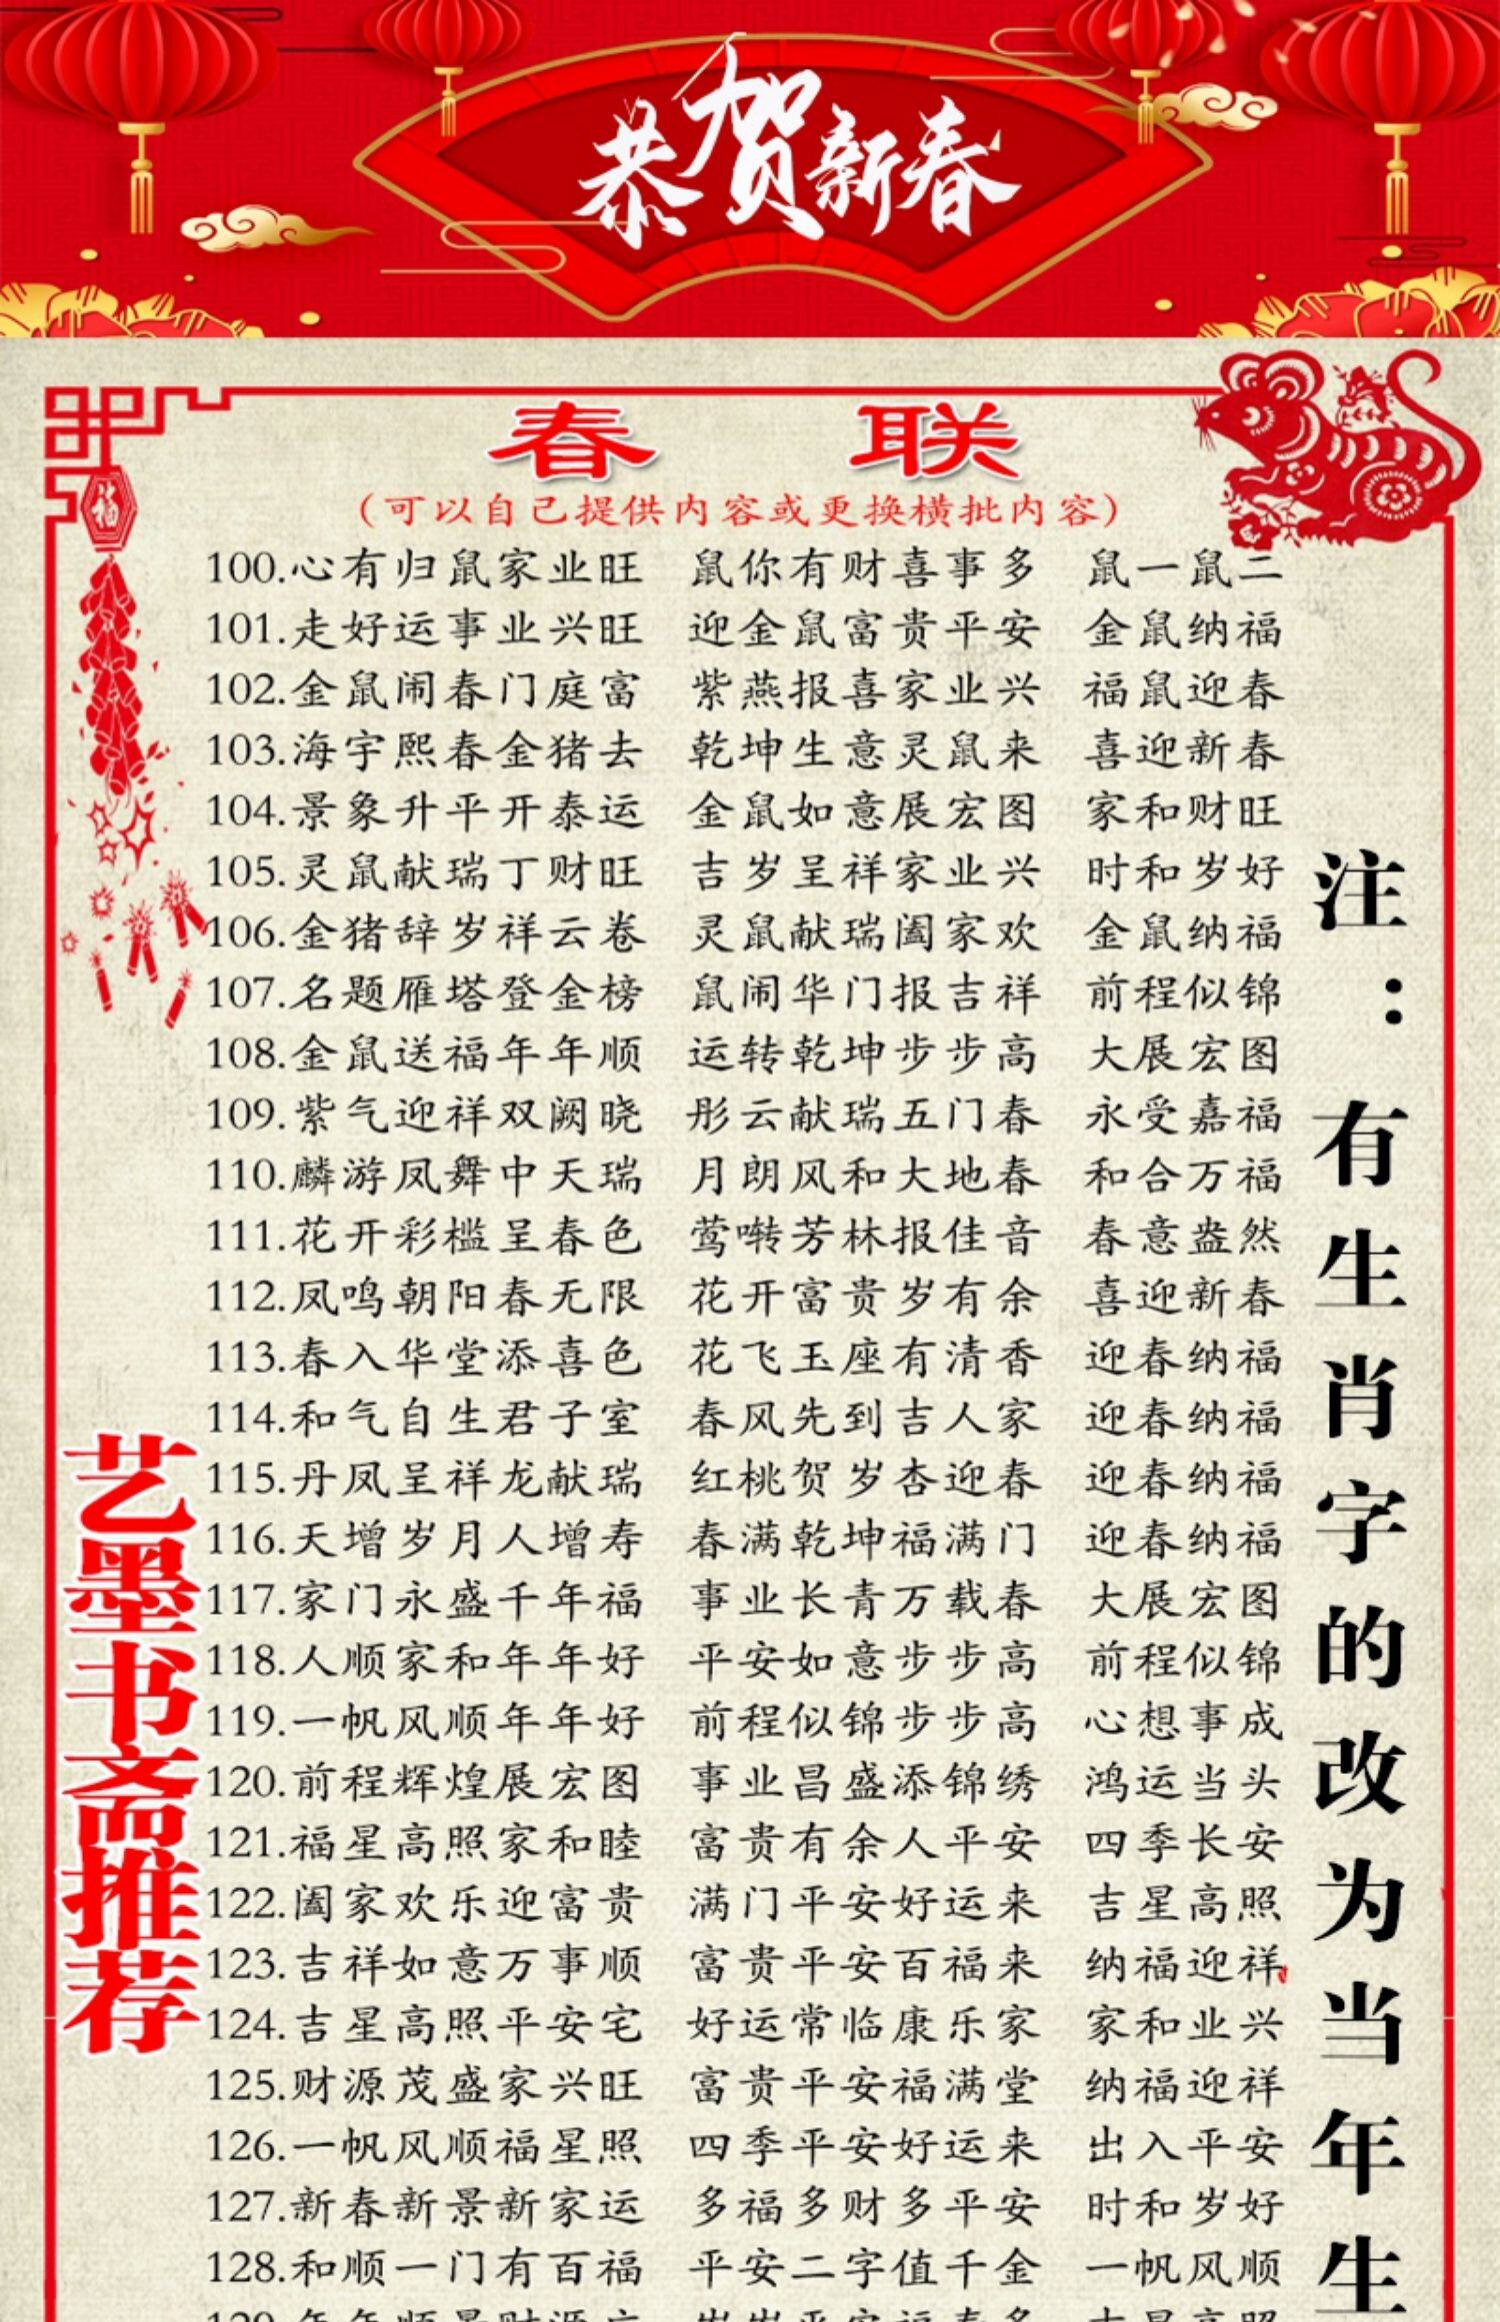 恭贺新春
春 联
(可以自己提供内容或更换横批内容)
福
100.心有归鼠家业旺 鼠你有财喜事多 鼠一鼠二
101.走好运事业兴旺 迎金鼠富贵平安 金鼠纳福
102.金鼠闹春门庭富 紫燕报喜家业兴 福鼠迎春
103.海宇熙春金猪去 乾坤生意灵鼠来 喜迎新春
104.景象升平开泰运 金鼠如意展宏图 家和财旺
105.灵鼠献瑞丁财旺 吉岁呈祥家业兴 时和岁好
106.金猪辞岁祥云卷 灵鼠献瑞阖家欢 金鼠纳福
107.名题雁塔登金榜 鼠闹华门报吉祥 前程似锦
108.金鼠送福年年顺 运转乾坤步步高 大展宏图
109.紫气迎祥双阙晓 彤云献瑞五门春 永受嘉福
110.麟游凤舞中天瑞 月朗风和大地春 和合万福
111.花开彩槛呈春色 莺啭芳林报佳音 春意盎然
112.凤鸣朝阳春无限 花开富贵岁有余 喜迎新春
113.春入华堂添喜色 花飞玉座有清香 迎春纳福
114.和气自生君子室 春风先到吉人家 迎春纳福
115.丹凤呈祥龙献瑞 红桃贺岁杏迎春 迎春纳福
116.天增岁月人增寿 春满乾坤福满门 迎春纳福
117.家门永盛千年福 事业长青万载春 大展宏图
118.人顺家和年年好 平安如意步步高 前程似锦
119.一帆风顺年年好 前程似锦步步高 心想事成
120.前程辉煌展宏图 事业昌盛添锦绣 鸿运当头
121.福星高照家和睦 富贵有余人平安 四季长安
122.阖家欢乐迎富贵 满门平安好运来 吉星高照
123.吉祥如意万事顺 富贵平安百福来 纳福迎祥
124.吉星高照平安宅 好运常临康乐家 家和业兴
125.财源茂盛家兴旺 富贵平安福满堂 纳福迎祥
126.一帆风顺福星照 四季平安好运来 出入平安
127.新春新景新家运 多福多财多平安 时和岁好
128.和顺一门有百福 平安二字值千金 一帆风顺
艺墨书斋推荐
注：有生肖字的改为当年生